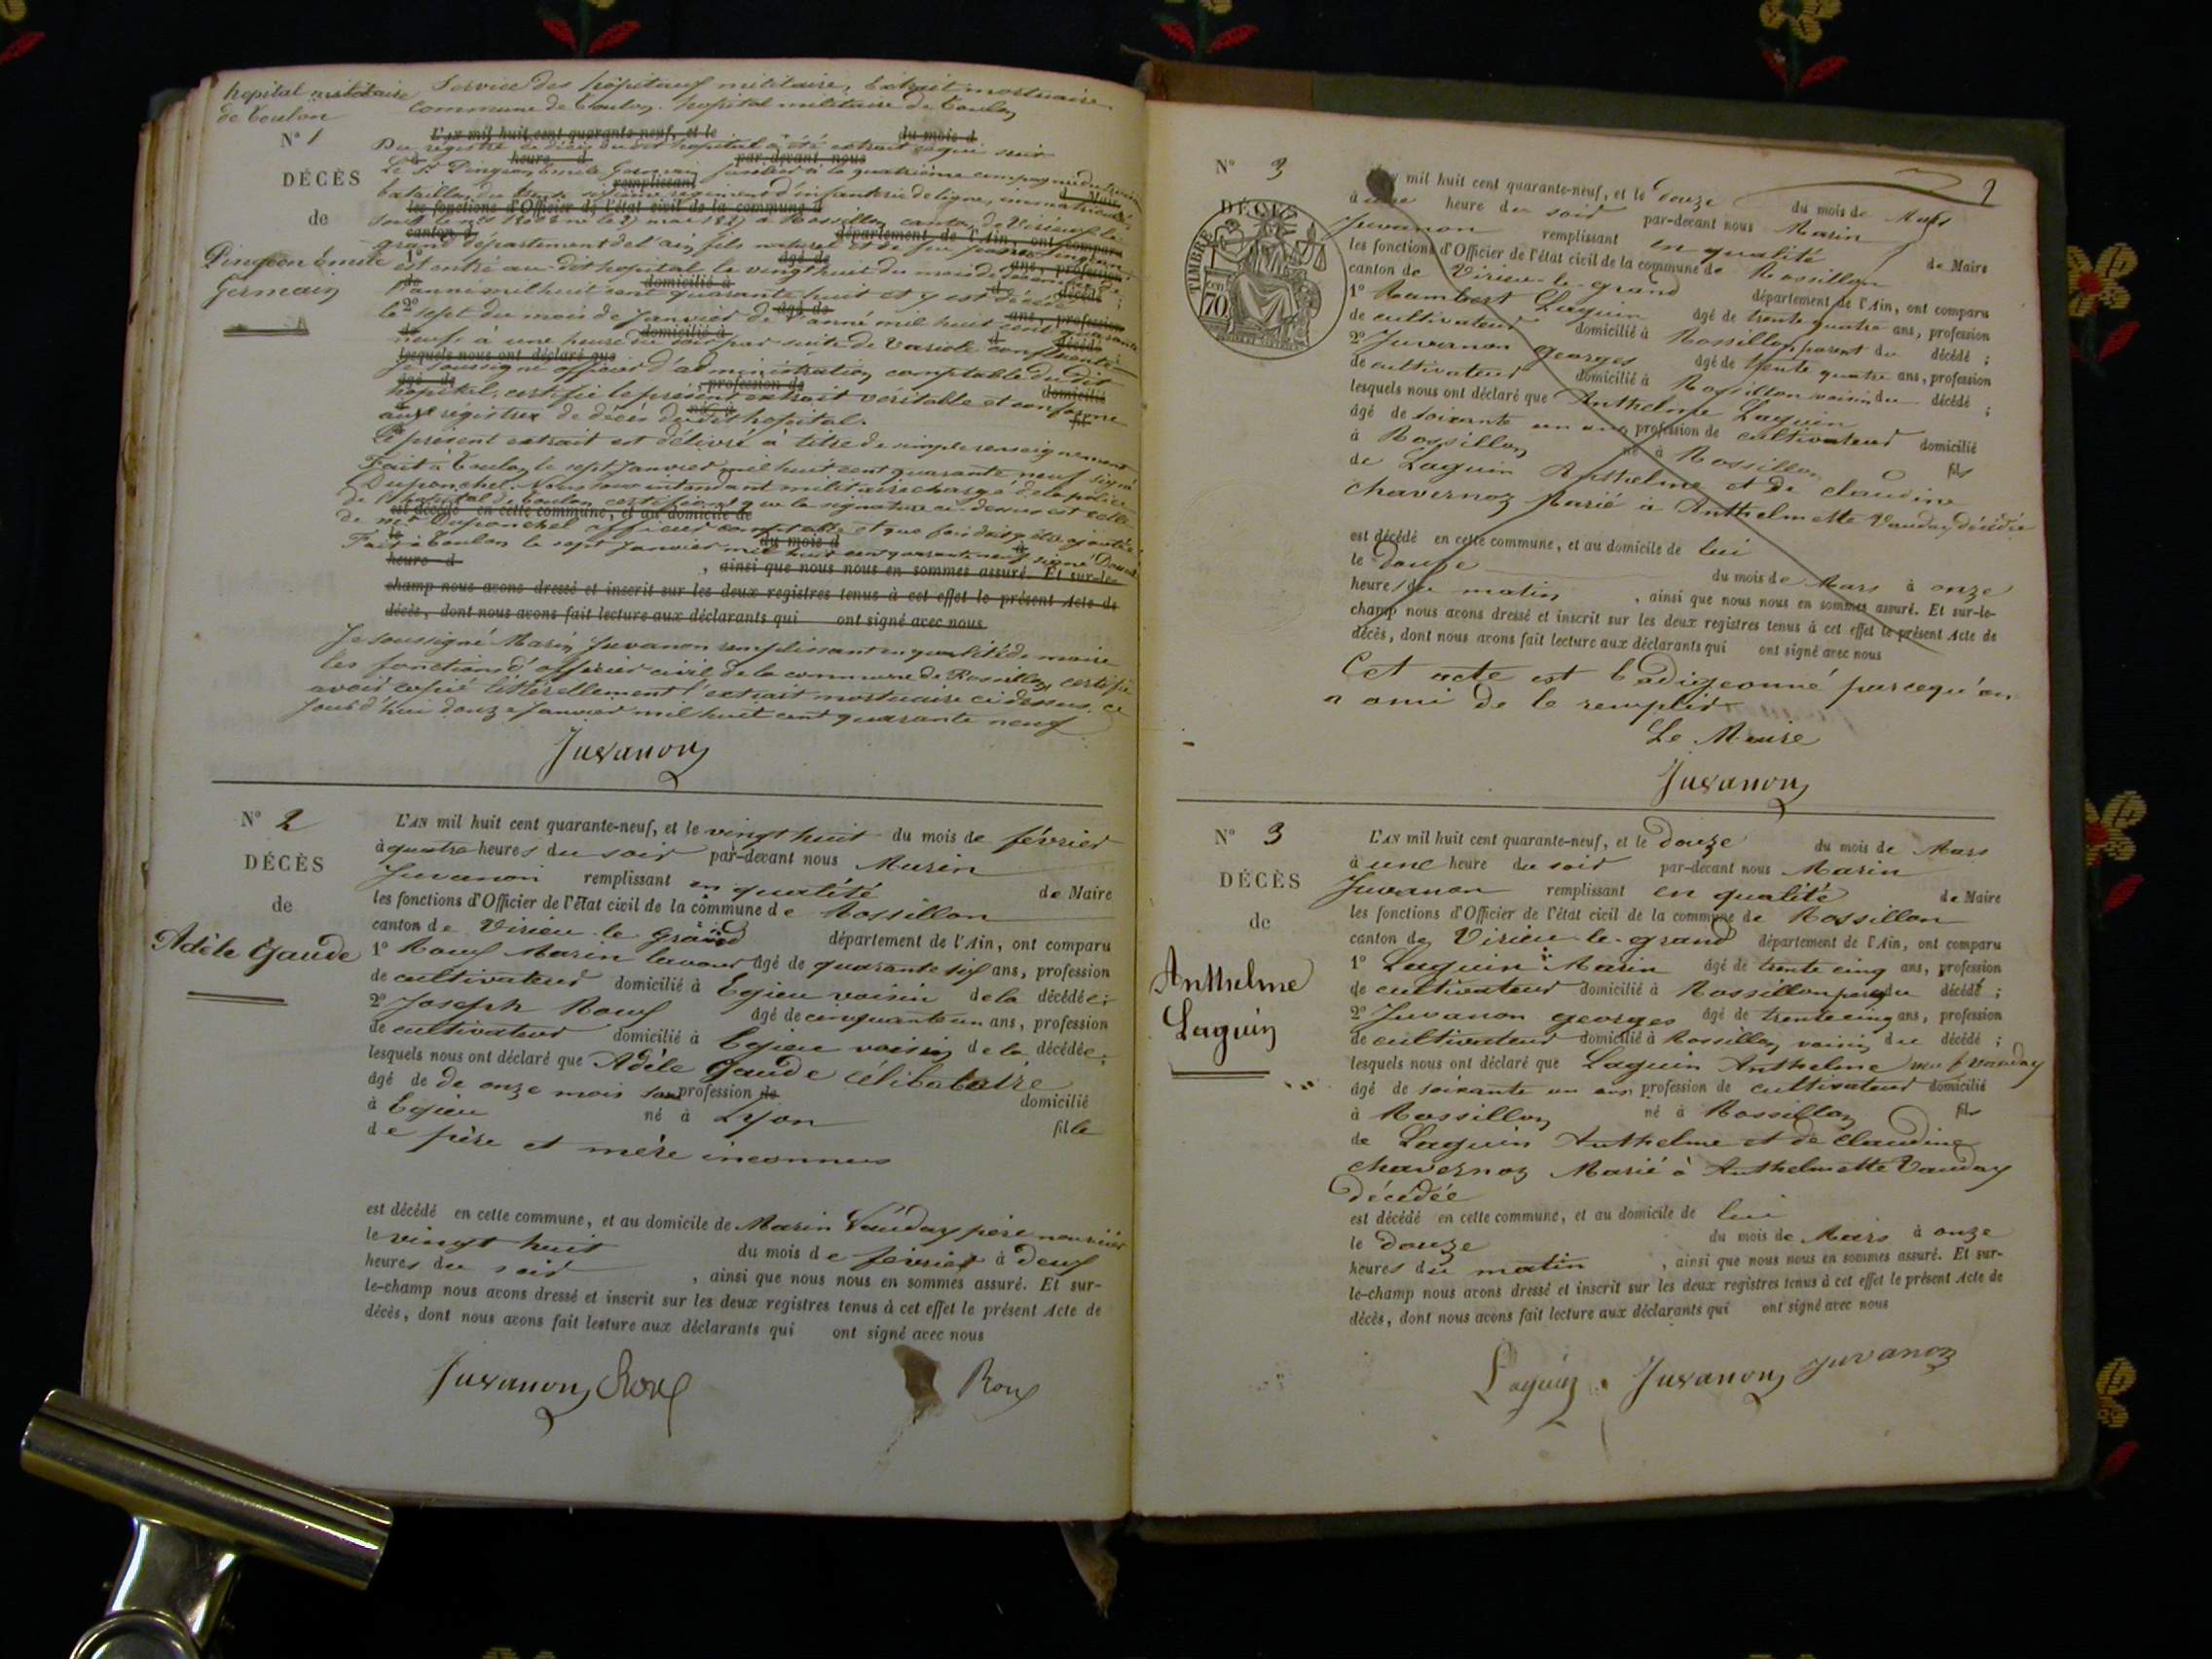 hopital militaire
de Toulon
Service des hôpitaux militaire, Extrait mortuaire
commune de Toulon. hopital militaire de Toulon
N° 1
DÉCÈS
de
Dingeon Emile
Germain
L'AN mil huit cent quarante-neuf, et le du mois d
Du registre de décès dudit hopital a été extrait ce qui suit
heure d par-devant nous
Le Sr Dingeon Emile Germain fusilier à la quatrième compagnie du
remplissant d Maire
bataillon du trente sixième régiment d'infanterie de ligne, immatriculé
les fonctions d'Officier de l'état civil de la commune d
canton d département de l'Ain, ont comparu
grand département de l'ain, fils naturel et de feu
1° âgé de ans, profession
est entré au dit hopital le vingt huit du mois de
de domicilié à d décédé ;
l'anné mil huit cent quarante huit et y est décédé
2° âgé de ans, profession
le sept du mois de Janvier de l'anné mil huit cent quarante
de domicilié à d décédé
neuf à une heure du soir par suite de Variole confluente
lesquels nous ont déclaré que
Je soussigné officier d'administration comptable dudit
âgé de , profession de domicilié
hopital, certifie le présent extrait véritable et conforme
à né à fil
aux régistres de décès dudit hopital.
Le présent extrait est délivré à titre de simple renseignement
Fait à Toulon le sept Janvier mil huit cent quarante neuf signé
Duponchel. Nous sous intendant militaire chargé de la police
de l'hopital de Toulon certifions que la signature ci-dessus est celle
est décédé en cette commune, et au domicile de
de mr Duponchel officier comptable et que foi doit y être ajoutée
le du mois d à
Fait à Toulon le sept Janvier mil huit cent quarante neuf signé
heure d , ainsi que nous nous en sommes assuré. Et sur-le-
champ nous avons dressé et inscrit sur les deux registres tenus à cet effet le présent Acte de
décès, dont nous avons fait lecture aux déclarants qui ont signé avec nous
Je soussigné Marin Juvanon remplissant en qualité de maire
les fonctions d'officier civil de la commune de Rossillon, certifie
avoir copié littérellement l'extrait mortuaire ci dessus, ce
jourd'hui douze Janvier mil huit cent quarante neuf
Juvanon
N° 2
DÉCÈS
de
Adèle Gaude
L'AN mil huit cent quarante-neuf, et le vingt huit du mois de février
à quatre heures du soir par-devant nous Marin
Juvanon remplissant en qualité de Maire
les fonctions d'Officier de l'état civil de la commune de Rossillon
canton de Virieu-le-grand département de l'Ain, ont comparu
1° Roux Marin âgé de quarante six ans, profession
de cultivateur domicilié à Egieu voisin de la décédée ;
2° Joseph Roux âgé de cinquante un ans, profession
de cultivateur domicilié à Egieu voisin de la décédée ;
lesquels nous ont déclaré que Adèle Gaude célibataire
âgé de de onze mois sans profession de domicilié
à Egieu né à Lyon fille
de père et mère inconnus
est décédé en cette commune, et au domicile de Marin Vauday père nourricier
le vingt huit du mois de février à deux
heures du soir , ainsi que nous nous en sommes assuré. Et sur-
le-champ nous avons dressé et inscrit sur les deux registres tenus à cet effet le présent Acte de
décès, dont nous avons fait lecture aux déclarants qui ont signé avec nous
Juvanon Roux Roux
2
N° 3
DÉCÈS
TIMBRE
70
mil huit cent quarante-neuf, et le douze du mois de Mars
à une heure du soir par-devant nous Marin
Juvanon remplissant en qualité de Maire
les fonctions d'Officier de l'état civil de la commune de Rossillon
canton de Virieu-le-grand département de l'Ain, ont comparu
1° Rambert Laguin âgé de trente quatre ans, profession
de cultivateur domicilié à Rossillon, parent du décédé ;
2° Juvernon georges âgé de trente quatre ans, profession
de cultivateur domicilié à Rossillon voisin du décédé ;
lesquels nous ont déclaré que Anthelme Laguin
âgé de soixante un ans, profession de cultivateur domicilié
à Rossillon né à Rossillon fils
de Laguin Anthelme et de claudine
chavernoz Marié à Anthelmette Vauday décédée
est décédé en cette commune, et au domicile de lui
le douze du mois de Mars à onze
heures du matin , ainsi que nous nous en sommes assuré. Et sur-le-
champ nous avons dressé et inscrit sur les deux registres tenus à cet effet le présent Acte de
décès, dont nous avons fait lecture aux déclarants qui ont signé avec nous
Cet acte est badigeonné parcequ'on
a omi de le remplir
Le Maire
Juvanon
N° 3
DÉCÈS
de
Anthelme
Laguin
L'AN mil huit cent quarante-neuf, et le douze du mois de Mars
à une heure du soir par-devant nous Marin
Juvanon remplissant en qualité de Maire
les fonctions d'Officier de l'état civil de la commune de Rossillon
canton de Virieu-le-grand département de l'Ain, ont comparu
1° Laguin Marin âgé de trente cinq ans, profession
de cultivateur domicilié à Rossillon du décédé ;
2° Juvanon georges âgé de trente cinq ans, profession
de cultivateur domicilié à Rossillon voisin du décédé ;
lesquels nous ont déclaré que Laguin Anthelme Vauday
âgé de soixante un ans profession de cultivateur domicilié
à Rossillon né à Rossillon fils
de Laguin Anthelme et de claudine
chavernoz Marié à Anthelmette Vauday
décédée
est décédé en cette commune, et au domicile de lui
le douze du mois de Mars à onze
heures du matin , ainsi que nous nous en sommes assuré. Et sur-
le-champ nous avons dressé et inscrit sur les deux registres tenus à cet effet le présent Acte de
décès, dont nous avons fait lecture aux déclarants qui ont signé avec nous
Laguin Juvanon Juvanon